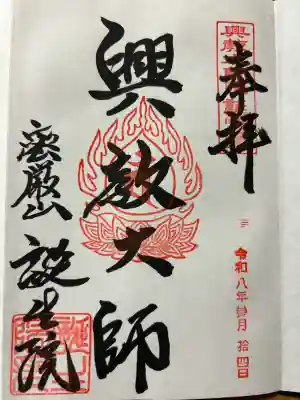 奉拝
令和八年
拾四日
興教大師
密厳山 誕生院